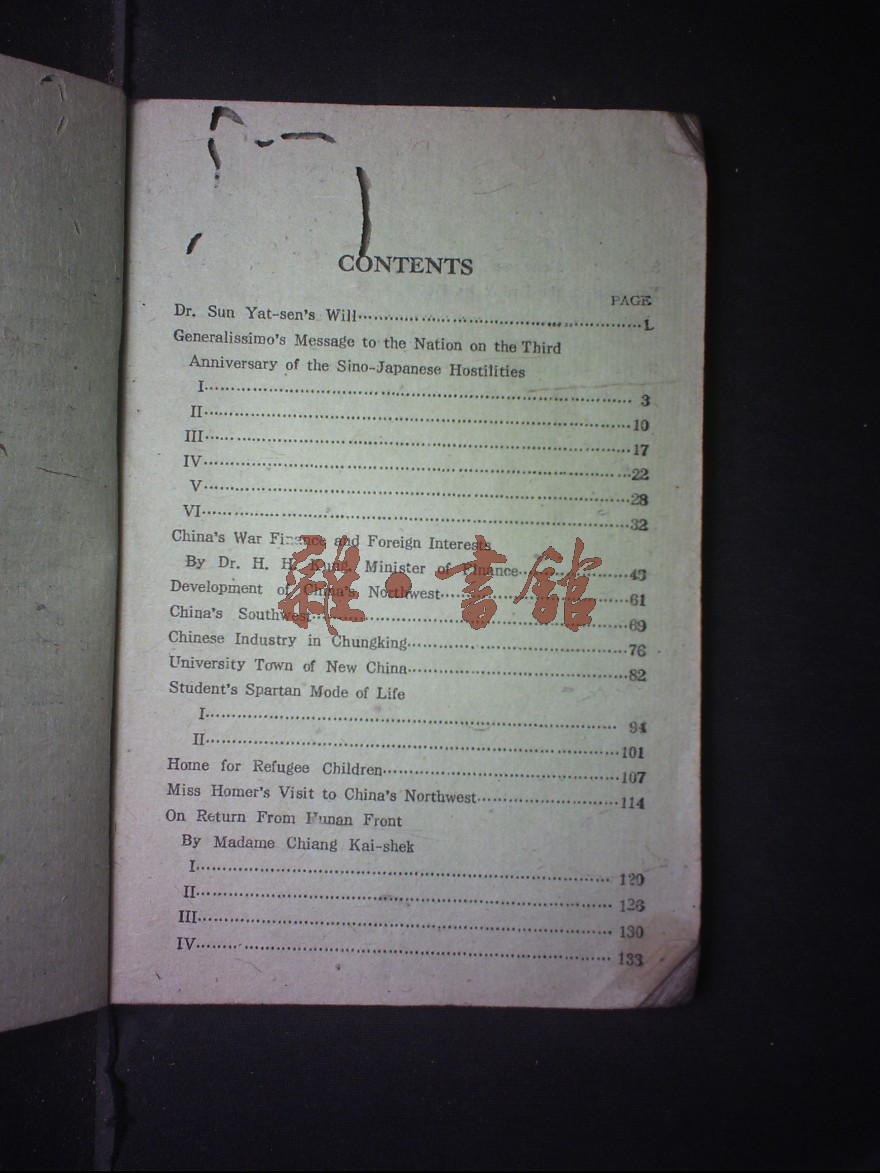 CONTENTS
PAGE
Dr. Sun Yat-sen's Will 1
Generalissimo's Message to the Nation on the Third
Anniversary of the Sino-Japanese Hostilities
I 3
II 10
III 17
IV 22
V 28
VI 32
China's War Finance and Foreign Interests
By Dr. H. H. Kung, Minister of Finance 43
Development of China's Northwest 61
China's Southwest 69
Chinese Industry in Chungking 76
University Town of New China 82
Student's Spartan Mode of Life
I 94
II 101
Home for Refugee Children 107
Miss Homer's Visit to China's Northwest 114
On Return From Hunan Front
By Madame Chiang Kai-shek
I 120
II 126
III 130
IV 133
雜·書館